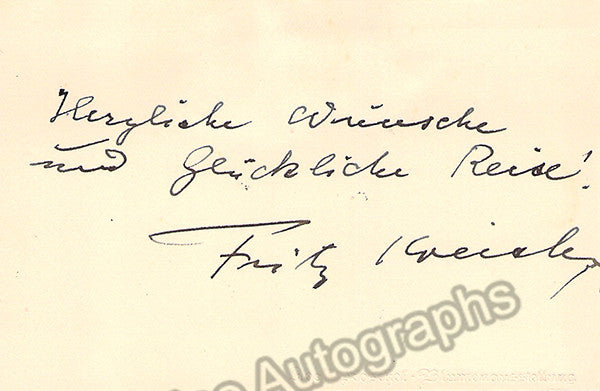 Herzliche Wünsche
und Glückliche Reise!
Fritz Kreisler
Autographs